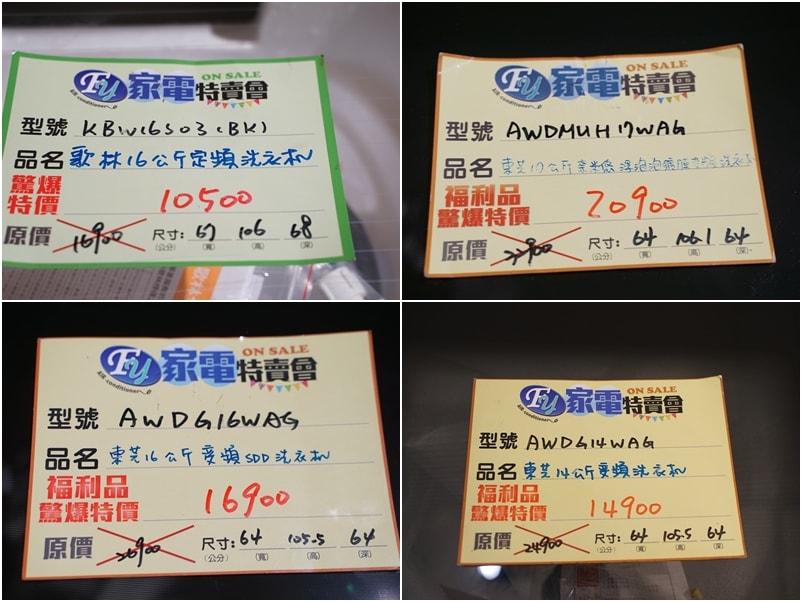 FY 家電特賣會 ON SALE
air-conditioner
型號 KBW16S03(BK)
品名 歌林16公斤定頻洗衣机
驚爆特價 10500
原價 16900 尺寸: 57 106 58
(公分) (寬) (高) (深)
FY 家電特賣會 ON SALE
air-conditioner
型號 AWDMUH17WAG
品名 東芝17公斤奈米悠浮泡泡鍍膜變頻洗衣机
福利品
驚爆特價 20900
原價 尺寸: 64 106.1 64
(公分) (寬) (高) (深)
FY 家電特賣會 ON SALE
air-conditioner
型號 AWDG16WAG
品名 東芝16公斤变頻SDD洗衣机
福利品
驚爆特價 16900
原價 26900 尺寸: 64 105.5 64
(公分) (寬) (高) (深)
FY 家電特賣會 ON SALE
air-conditioner
型號 AWDG14WAG
品名 東芝14公斤变頻洗衣机
福利品
驚爆特價 14900
原價 24900 尺寸: 64 105.5 64
(公分) (寬) (高) (深)